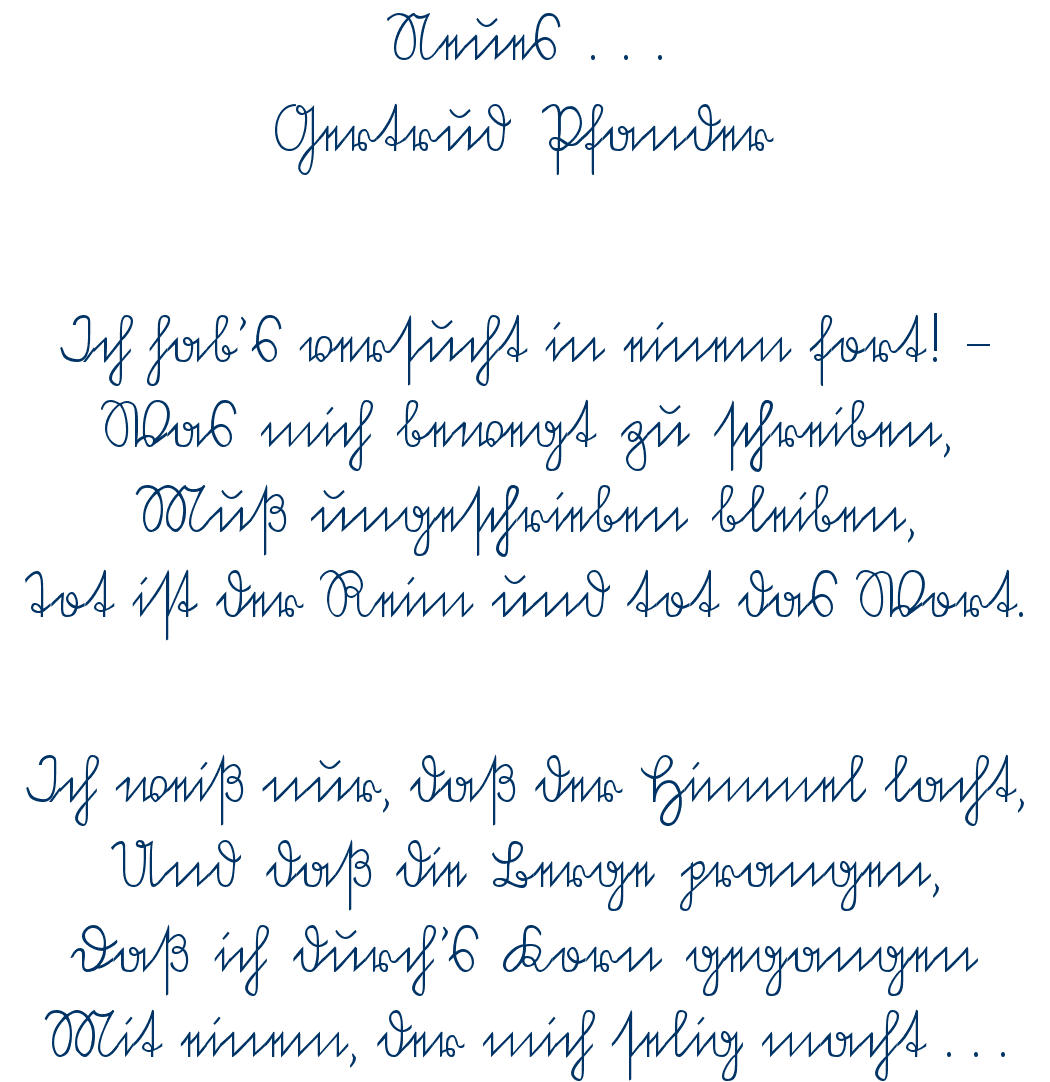 Neues . . .
Gertrud Pfander
Ich hab's versucht in einem fort! –
Was mich bewegt zu schreiben,
Muß ungeschrieben bleiben,
tot ist der Reim und tot das Wort.
Ich weiß nur, daß der Himmel lacht,
Und daß die Berge prangen,
Daß ich durch's Korn gegangen
Mit einem, der mich selig macht . . .